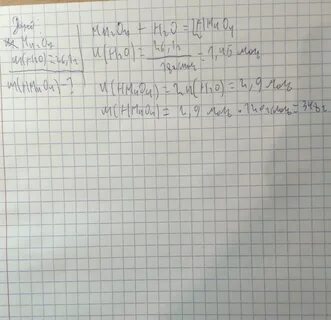 Дано
Mn₂O₇
m(H₂O)=26,1г
m(HMnO₄)-?
Mn₂O₇ + H₂O = 2HMnO₄
n(H₂O) = 26,1г / 18г/моль = 1,45 моль
n(HMnO₄) = 2n(H₂O) = 2,9 моль
m(HMnO₄) = 2,9 моль · 120г/моль = 348г